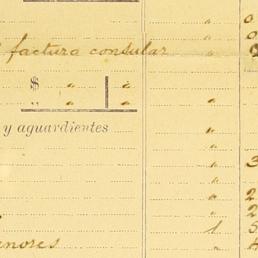 " 0
" 0
factura consular "
$ " "
" " " "
y aguardientes
"
"
" 3
"
" 2
" 2
1 5
enores " 4